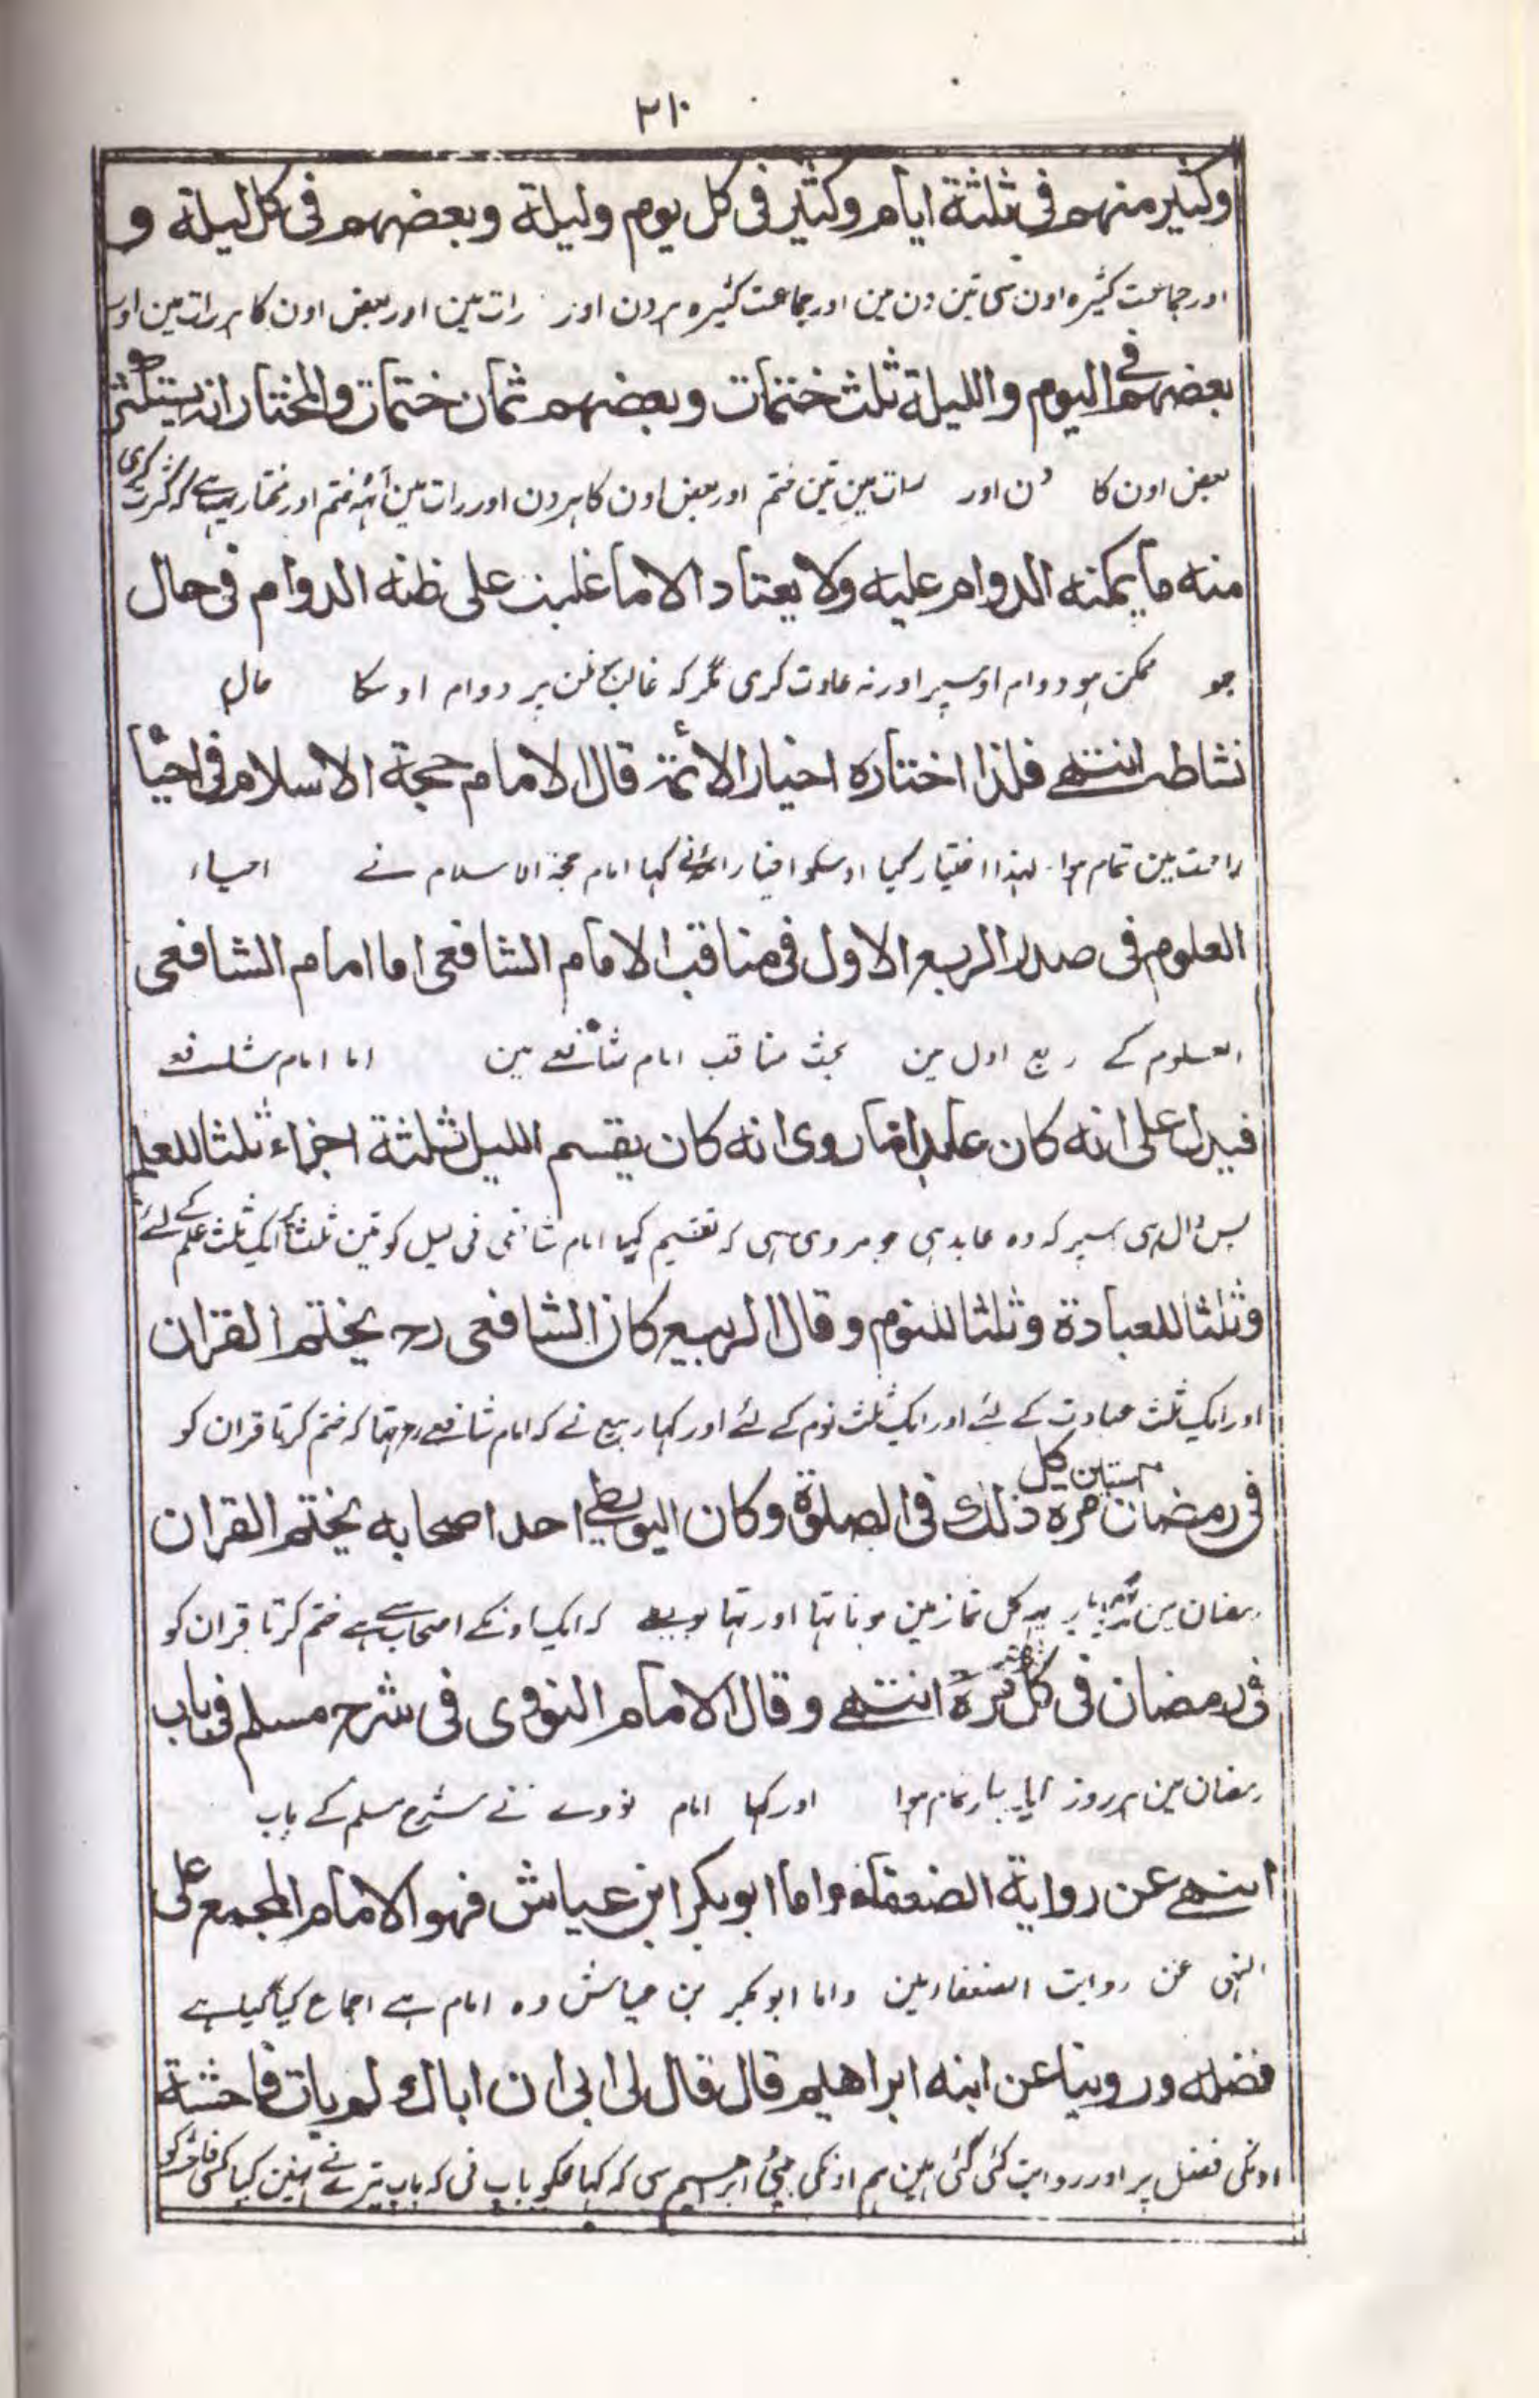 ٢١٠
وكثير منهم في ثلثة ايام وكثير في كل يوم وليلة وبعضهم في كل ليلة و
اور جماعت كثيره اون سى تين دن مين اور جماعت كثيره ہر دن اور رات مين اور بعض اون كا ہر رات مين اور
بعضهم في اليوم والليلة ثلث ختمات وبعضهم ثمان ختمات والمختار انه يستكثر
بعض اون كا دن اور رات مين تين ختم اور بعض اون كا ہر دن اور رات مين آٹھ ختم اور مختار يہ ہے كہ كثرت كرى
منه ما يمكنه الدوام عليه ولا يعتاد الا ما غلب على ظنه الدوام في حال
جو ممكن ہو دوام اوسپر اور نہ عادت كرى مگر كہ غالب ظن پر دوام اوسكا حال
نشاطه انتهے فلذا اختاره اخيار الائمة قال الامام حجة الاسلام في احيا
راحت مين تمام ہوا لہذا اختيار كيا اوسكو اخيار ائمہ نے كہا امام حجة الاسلام نے احياء
العلوم في صدر الربع الاول في مناقب الامام الشافعي اما امام الشافعي
العلوم كے ربع اول مين بحث مناقب امام شافعے مين اما امام شافعے
فيدل على انه كان عابدا ما روى انه كان يقسم الليل ثلثة اجزاء ثلثا للعلم
پس دال ہى اسپر كہ وہ عابد ہى جو مروى ہى كہ تقسيم كيا امام شافعى نى ليل كو تين ثلث ايك ثلث علم كے لئے
وثلثا للعبادة وثلثا للنوم وقال الربيع كان الشافعي رح يختم القران
اور ايك ثلث عبادت كے لئے اور ايك ثلث نوم كے لئے اور كہا ربيع نے كہ امام شافعے رح تہا كہ ختم كرتا قران كو
في رمضان ستين مرة كل ذلك في الصلوة وكان البويطي احد اصحابه يختم القران
رمضان مين بار يہ كل نماز مين ہوتا تہا اور تہا بويطے كہ ايك اونكے اصحاب سے ہے ختم كرتا قران كو
في رمضان في كل مرة انتهے وقال الامام النووي في شرح مسلم في باب
رمضان مين ہر روز ايك بار تمام ہوا اور كہا امام نووے نے شرح مسلم كے باب
النهے عن رواية الضعفاء واما ابو بكر ابن عياش فهو الامام المجمع على
النہى عن روايت الضعفاء مين واما ابو بكر بن عياش وہ امام ہے اجماع كيا گيا ہے
فضله وروينا عن ابنه ابراهيم قال قال لي ابي ان اباك لم يات فاحشة
اونكى فضل پر اور روايت كئى گئى ہين ہم اونكى بيٹے ابراہيم سى كہ كہا مجكو باپ نى كہ باپ تيرے نے نہين كيا كسى فاحشہ كو